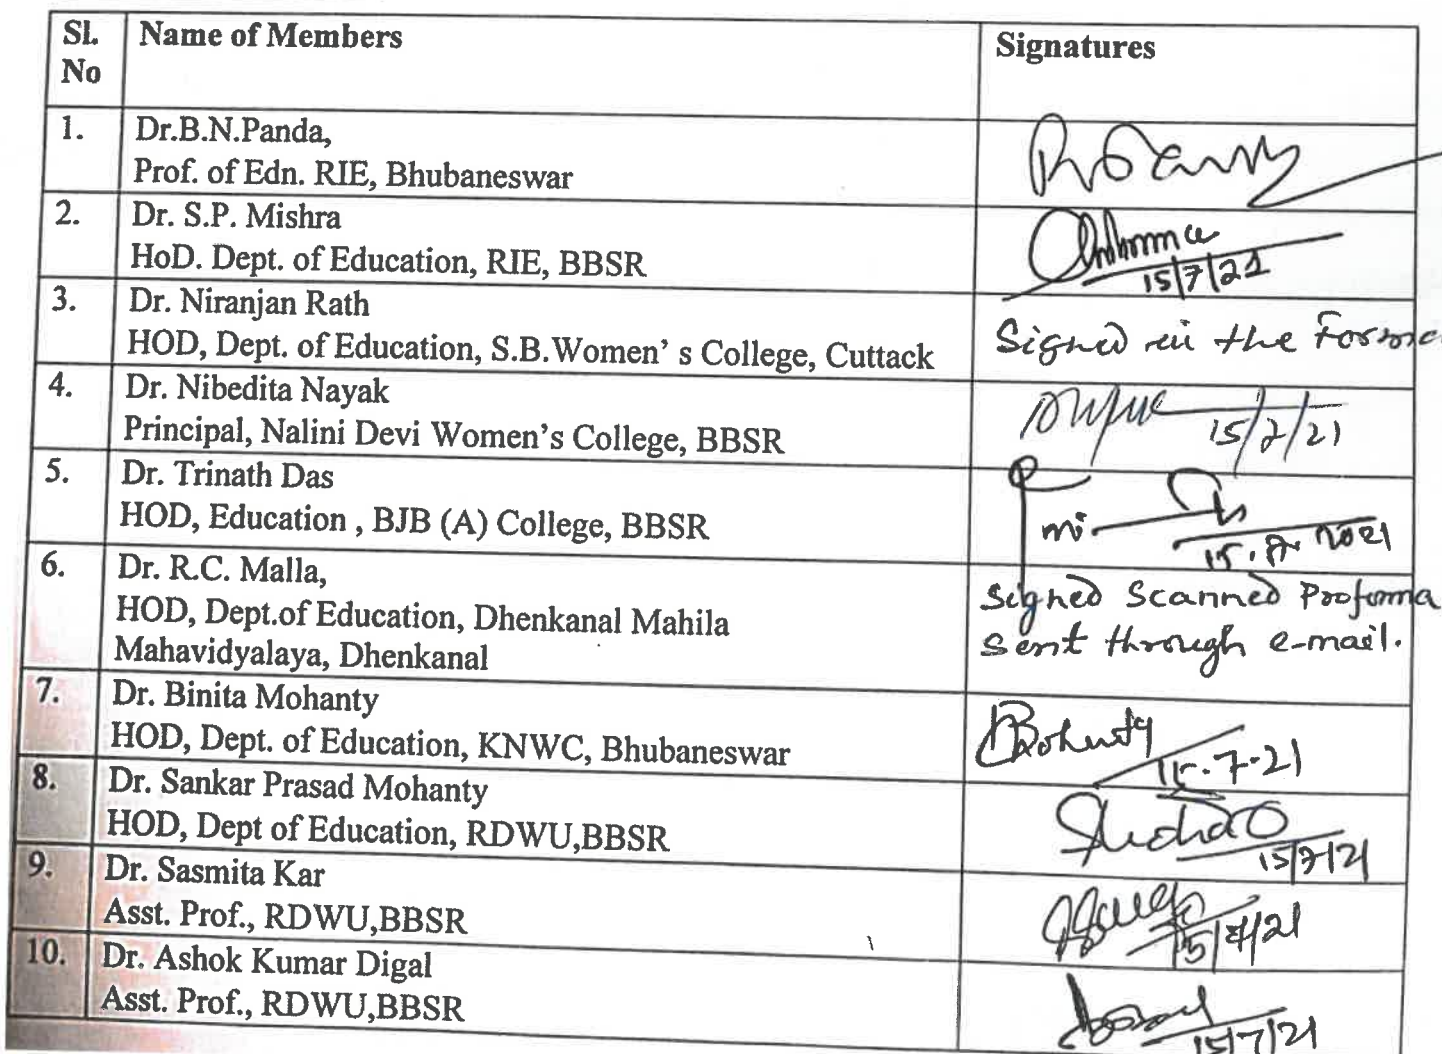 Sl. Name of Members Signatures
No
1. Dr.B.N.Panda,
Prof. of Edn. RIE, Bhubaneswar
2. Dr. S.P. Mishra
HoD. Dept. of Education, RIE, BBSR
15/7/21
3. Dr. Niranjan Rath
HOD, Dept. of Education, S.B.Women' s College, Cuttack
Signed in the Forma
4. Dr. Nibedita Nayak
Principal, Nalini Devi Women's College, BBSR
15/7/21
5. Dr. Trinath Das
HOD, Education , BJB (A) College, BBSR
6. Dr. R.C. Malla,
HOD, Dept.of Education, Dhenkanal Mahila
Mahavidyalaya, Dhenkanal
Signed Scanned Proforma
sent through e-mail.
7. Dr. Binita Mohanty
HOD, Dept. of Education, KNWC, Bhubaneswar
15.7.21
8. Dr. Sankar Prasad Mohanty
HOD, Dept of Education, RDWU,BBSR
15/7/21
9. Dr. Sasmita Kar
Asst. Prof., RDWU,BBSR
10. Dr. Ashok Kumar Digal
Asst. Prof., RDWU,BBSR
15/7/21